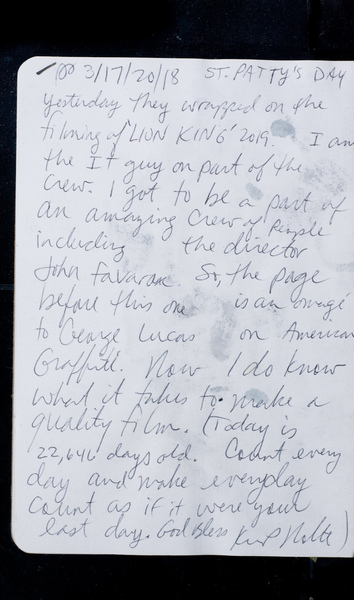 3/17/20/18 ST. PATTY'S DAY
Yesterday they wrapped on the
filming of 'LION KING' 2019. I am
the IT guy on part of the
Crew. I got to be a part of
an amazing Crew of People
including the director
John Favarae. So, the page
before this one is an omage
to George Lucas on American
Graffiti. Now I do know
what it takes to make a
quality film. (Today is
22,646 days old. Count every
day and make everyday
count as if it were your
last day. God Bless